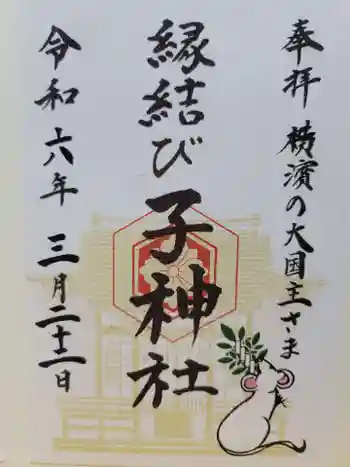 奉拝 横濱の大国主さま
縁結び 子神社
令和 六年 三月二十二日